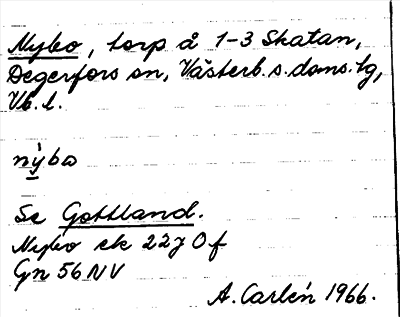 Nybo, torp å 1-3 Skatan,
Degerfors sn, Västerb. s. doms. lg,
Vb. l.
nybo
Se Gottland.
Nybo ek 22J Of
Gn 56 NV
A. Carlén 1966.